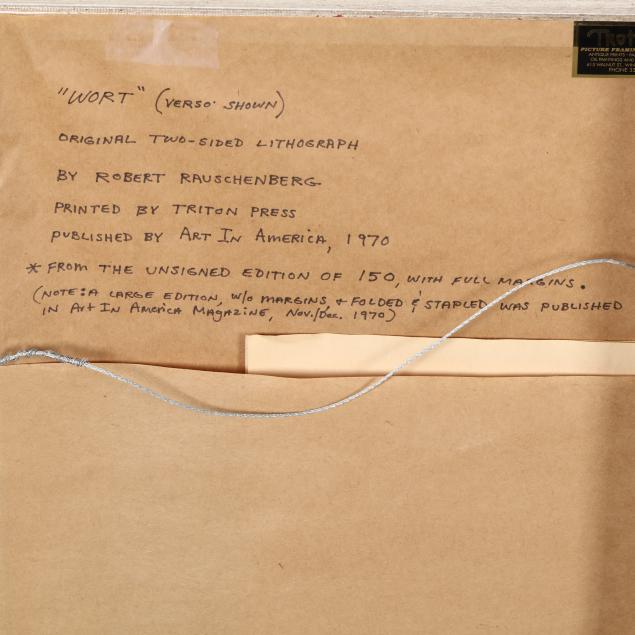 "WORT" (VERSO SHOWN)
ORIGINAL TWO-SIDED LITHOGRAPH
BY ROBERT RAUSCHENBERG
PRINTED BY TRITON PRESS
PUBLISHED BY ART IN AMERICA, 1970
* FROM THE UNSIGNED EDITION OF 150, WITH FULL MARGINS.
(NOTE: A LARGE EDITION, W/O MARGINS, + FOLDED & STAPLED WAS PUBLISHED
IN Art IN America MAGAZINE, Nov./Dec. 1970)
PICTURE FRAMIN
ANTIQUE PRINTS
OIL PAINTINGS AND
WALNUT ST., WIN
PHONE